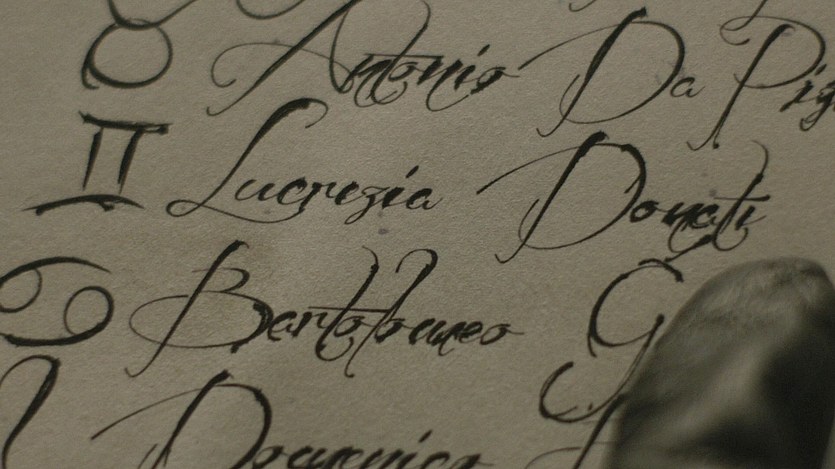 ♉ Antonio Da
♊ Lucrezia Donati
♋ Bartolomeo G
Domenico